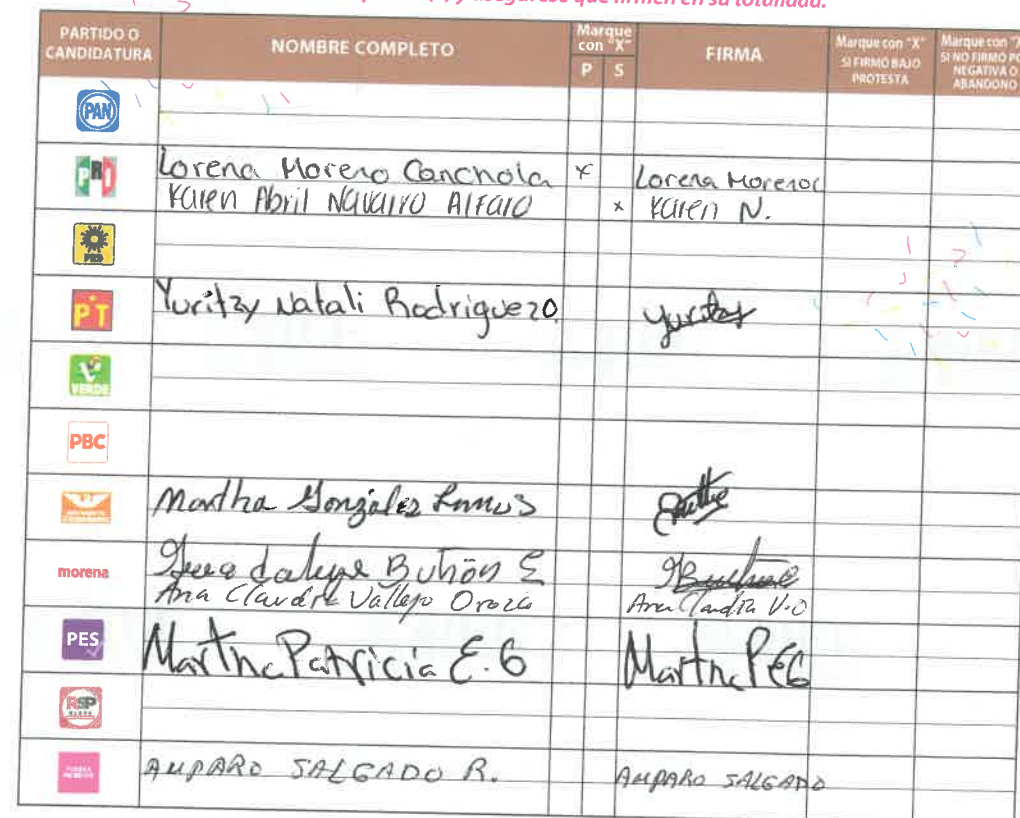 asegúrese que firmen en su totalidad.
PARTIDO O CANDIDATURA
NOMBRE COMPLETO
Marque con "X"
P S
FIRMA
Marque con "X" SI FIRMÓ BAJO PROTESTA
Marque con "X" SI NO FIRMÓ PO NEGATIVA O ABANDONO
PAN
PRI Lorena Moreno Canchola x Lorena Morenoc
Karen Abril Navarro Alfaro x Karen N.
PRD
PT Yuritzy Natali Rodriguez O. Yuritzy
VERDE
PBC
Martha González
morena Buhón E
Ana Claudia Vallejo Orozco Ana Claudia V.O
PES Martha Patricia E.G Martha P.E.G
RSP
AMPARO SALGADO R. AMPARO SALGADO